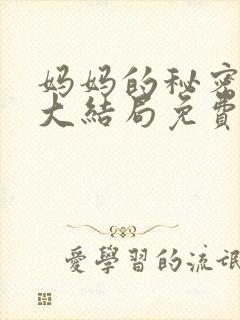 妈妈的秘密
大结局免費
愛學習的流氓